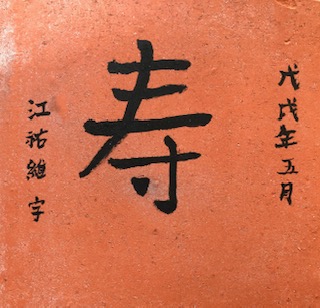 戊戌年五月
寿
江祐維字